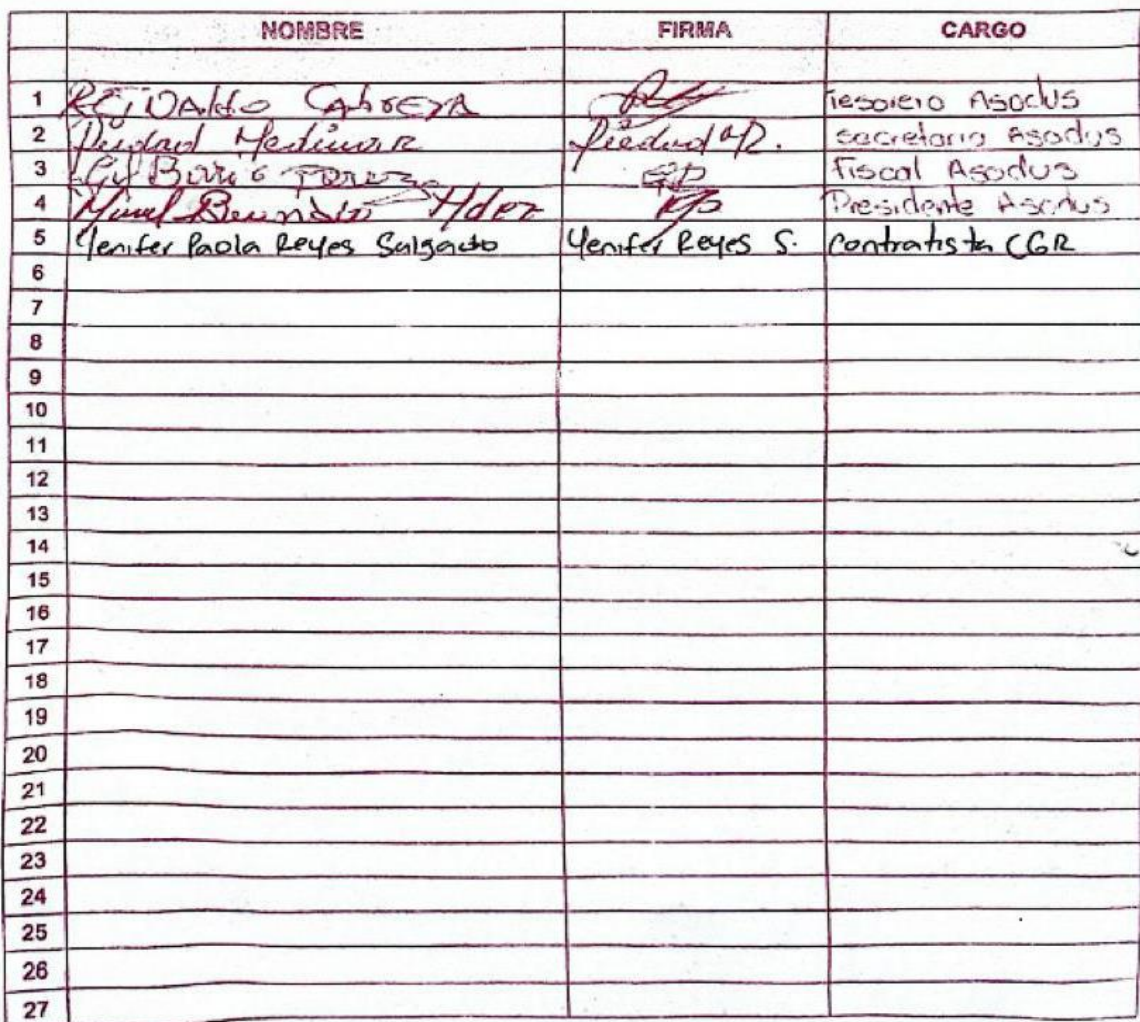 NOMBRE FIRMA CARGO
1 REiNALdo CAbrERA Tesorero Asodus
2 Piedad Medina R Piedad MR. secretaria Asodus
3 Gil Berrio Perez Fiscal Asodus
4 Hdez Presidente Asodus
5 Yenifer Paola Reyes Salgado Yenifer Reyes S. contratista CGR
6
7
8
9
10
11
12
13
14
15
16
17
18
19
20
21
22
23
24
25
26
27